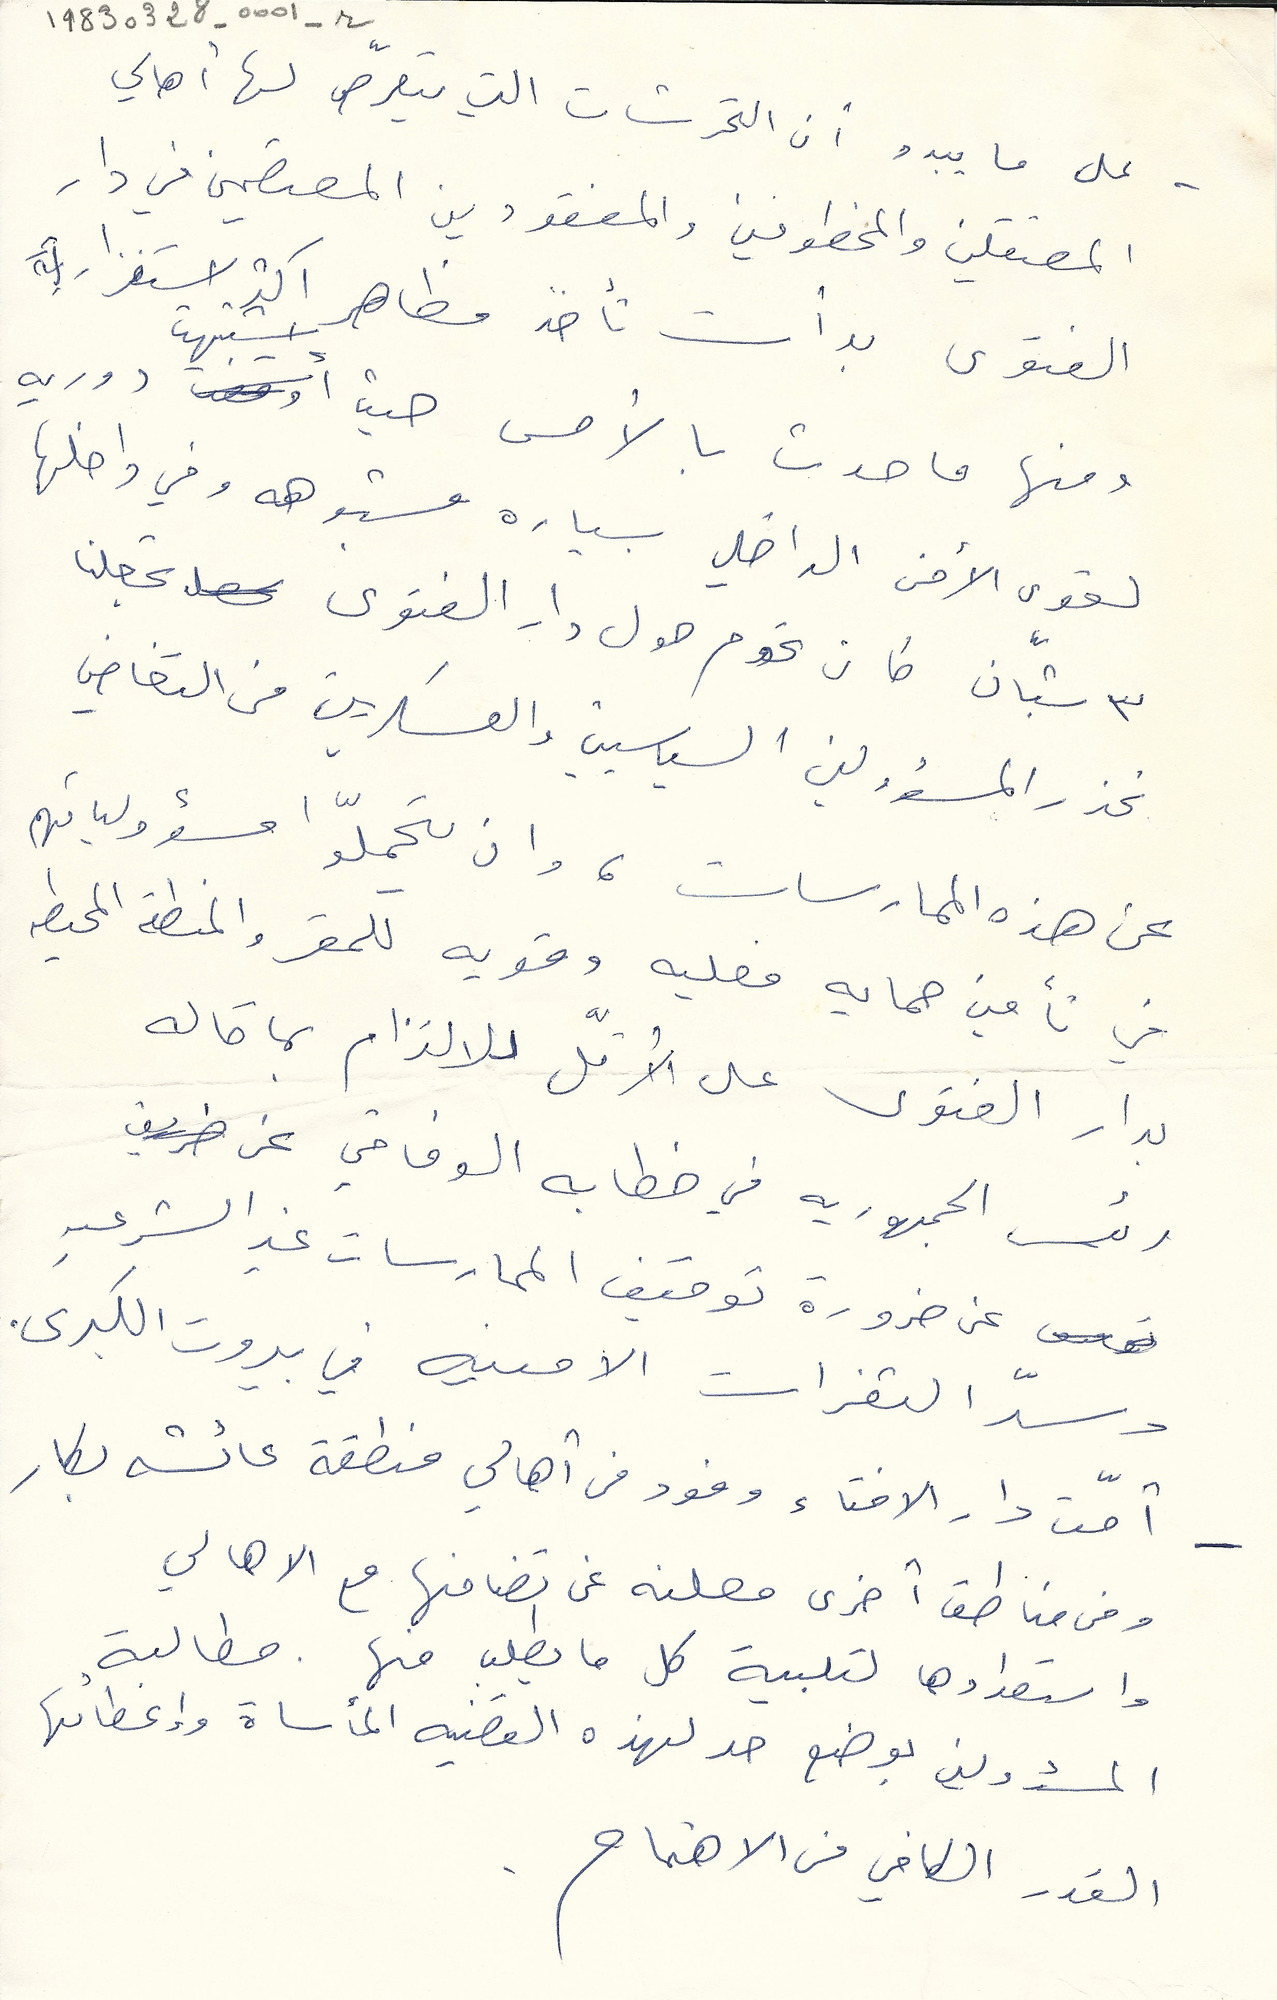 19830328_0001_r
- على ما يبدو أن التحرشات التي يتعرّض لها أهالي
المعتقلين والمخطوفين والمفقودين المعتصمين في دار
الفتوى بدأت تأخذ مظاهر اكثر استفزازية
ومنها ما حدث بالأمس حيث اشتبهت دوريه
لقوى الأمن الداخلي بسياره مشبوهه وفي داخلها
٣ شبّان كان تحوم حول دار الفتوى تجعلنا
نحذر المسؤولين السياسيين والعسكريين من التغاضي
عن هذه الممارسات ، وان يتحمّلوا مسؤولياتهم
في تأمين حمايه فعليه وقويه للمقر والمنطقة المحيطه
بدار الفتوى على الأقلّ للالتزام بما قاله
رئيس الجمهوريه في خطابه الوفاقي عن طريق
عن ضرورة توقيف الممارسات غير الشرعيه
وسدّ الثغرات الامنيه في بيروت الكبرى.
- أمّت دار الافتاء وفود من أهالي منطقة عائشه بكار
ومن مناطق أخرى معلنه عن تضامنها مع الاهالي
واستعدادها لتلبية كل ما يطلب منها . مطالبة
المسؤولين بوضع حد لهذه القضيه المأساة وإعطائها
القدر الكافي من الاهتمام .